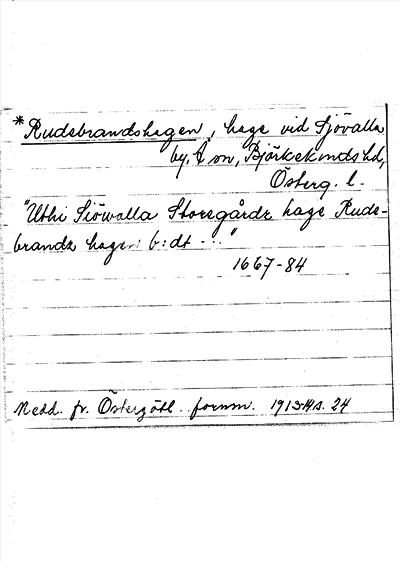 *Rudebrandshagen, hage vid Sjövalla
by, Å sn, Björkekinds hd,
Österg. l.
"Uthi Siöwalla Storegårdz hage Rude-
brandz hagen b:dt ..."
1667-84
Medd. fr. Östergötl. fornm. 1913 s. 24